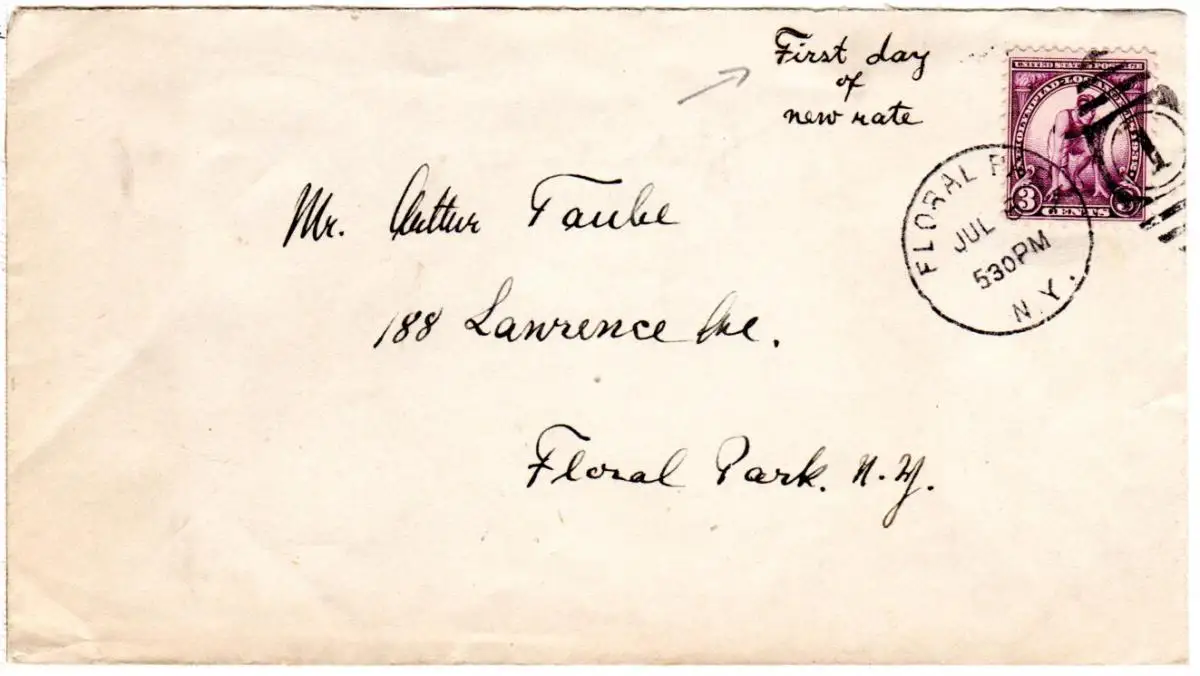 First day
of
new rate
UNITED STATES POSTAGE
3 CENTS
FLORAL
JUL
530PM
N.Y.
1
Mr. Arthur Taube
188 Lawrence Ave.
Floral Park. N.Y.